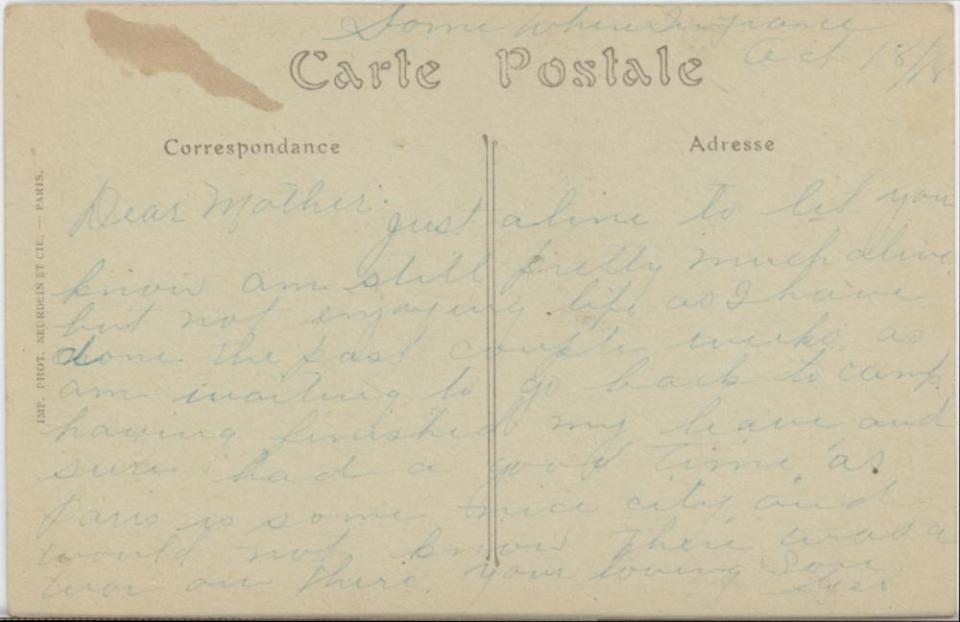 Some Where In France
Oct 18/18
Carte Postale
Correspondance
Adresse
IMP. PHOT. NEURDEIN ET CIE. — PARIS.
Dear Mother:
Just a line to let you
know am still pretty much alive
but not enjoying life as I have
done the past couple weeks as
am waiting to go back to camp
having finished my leave and
sure had a good time as
Paris is some nice city and
would not know there was a
war on there. Your loving Son
Geo